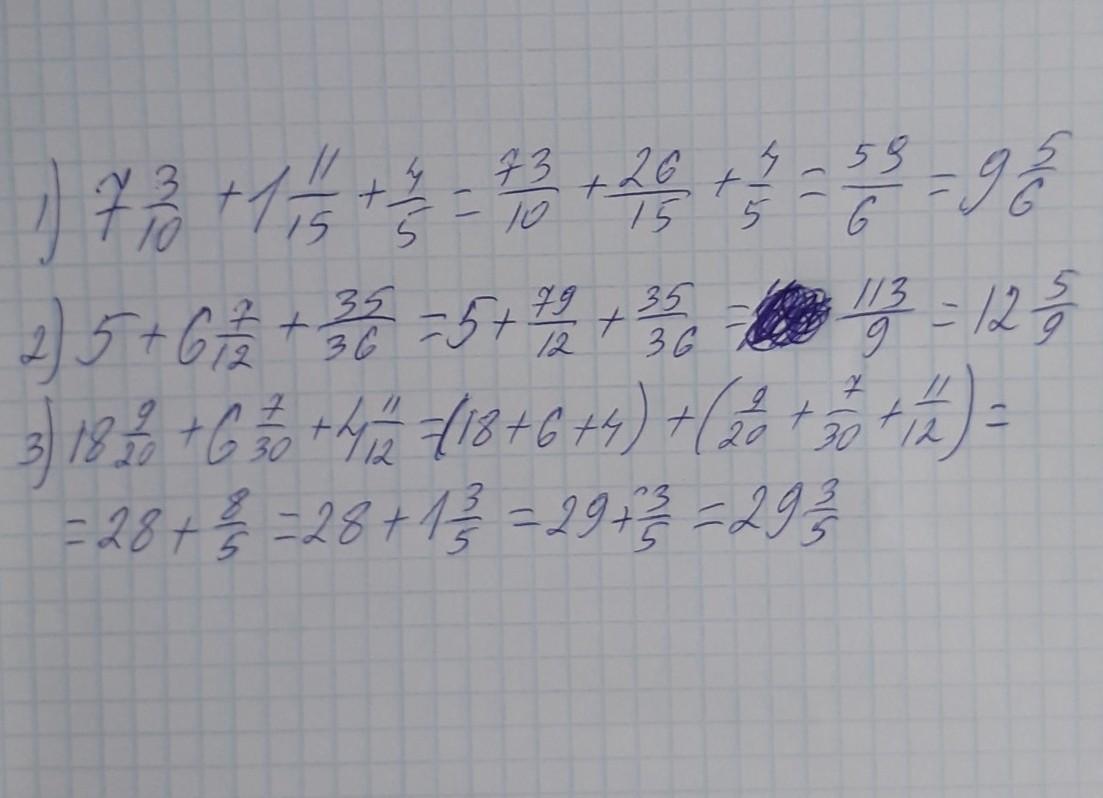 1) 7 3/10 + 1 11/15 + 4/5 = 73/10 + 26/15 + 4/5 = 59/6 = 9 5/6
2) 5 + 6 7/12 + 35/36 = 5 + 79/12 + 35/36 = 113/9 = 12 5/9
3) 18 9/20 + 6 7/30 + 4 11/12 = (18 + 6 + 4) + (9/20 + 7/30 + 11/12) =
= 28 + 8/5 = 28 + 1 3/5 = 29 + 3/5 = 29 3/5